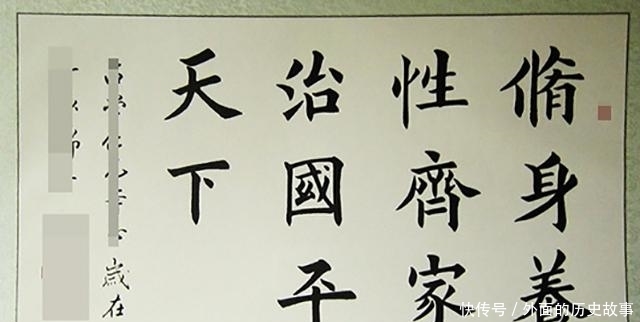 脩身養
性齊家
治國平
天下
歲在
快传号 / 外面的历史故事